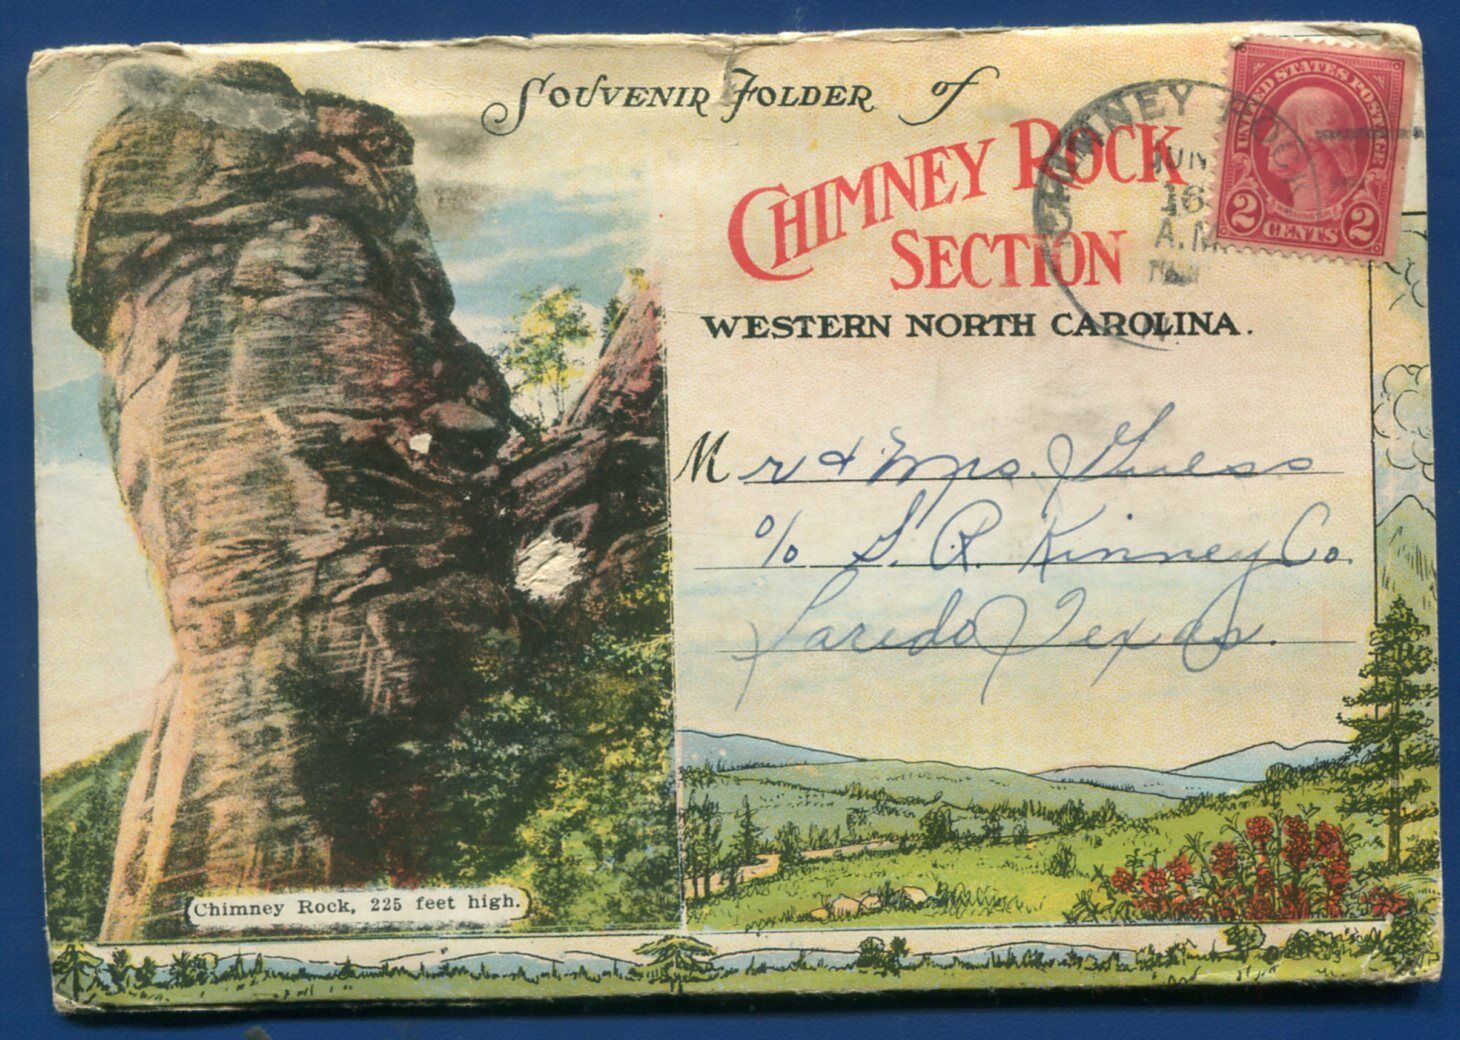 SOUVENIR FOLDER of
CHIMNEY ROCK
SECTION
WESTERN NORTH CAROLINA.
UNITED STATES POSTAGE
WASHINGTON
2 CENTS 2
CHIMNEY ROCK
JUN
16
A.M
Mr & Mrs. J Guess
% S. R. Kinney Co.
Laredo, Texas.
Chimney Rock, 225 feet high.